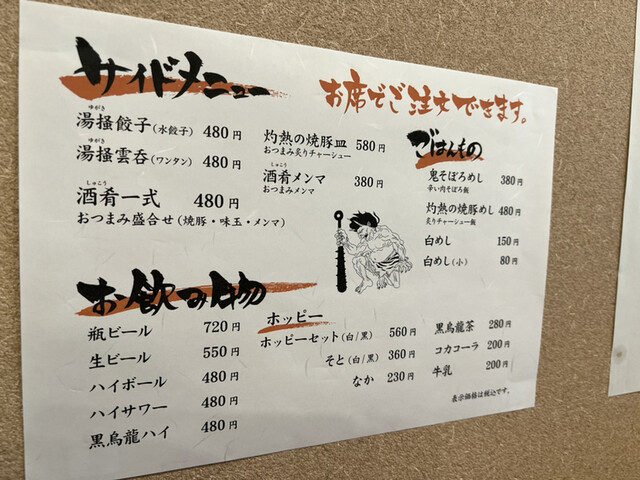 サイドメニュー
お席でご注文できます。
ゆがき
湯掻餃子(水餃子) 480円
ゆがき
湯掻雲呑(ワンタン) 480円
しゅこう
酒肴一式 480円
おつまみ盛合せ(焼豚・味玉・メンマ)
灼熱の焼豚皿 580円
おつまみ炙りチャーシュー
しゅこう
酒肴メンマ 380円
おつまみメンマ
ごはんもの
鬼そぼろめし 380円
辛い肉そぼろ飯
灼熱の焼豚めし 480円
炙りチャーシュー飯
白めし 150円
白めし(小) 80円
お飲み物
瓶ビール 720円
生ビール 550円
ハイボール 480円
ハイサワー 480円
黒烏龍ハイ 480円
ホッピー
ホッピーセット(白/黒) 560円
そと(白/黒) 360円
なか 230円
黒烏龍茶 280円
コカコーラ 200円
牛乳 200円
表示価格は税込です。